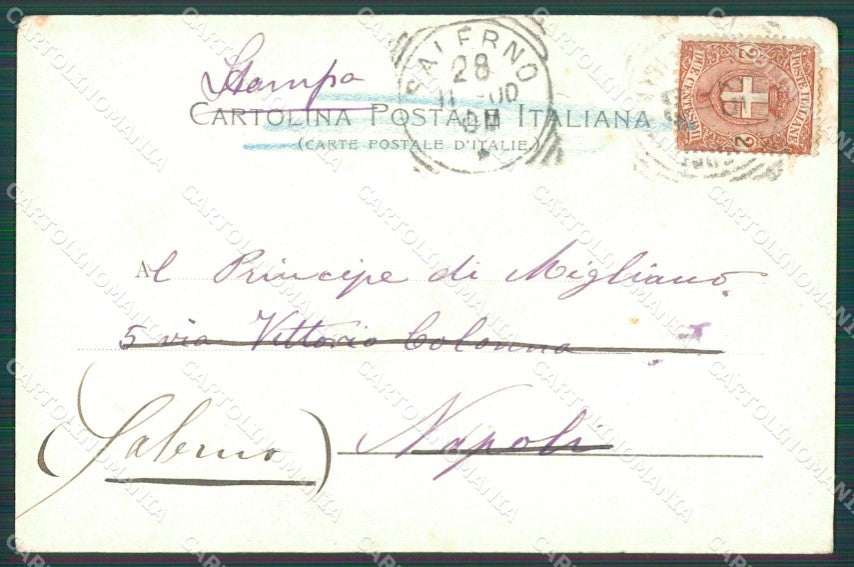 Stampa
CARTOLINA POSTALE ITALIANA
(CARTE POSTALE D'ITALIE.)
SALERNO
28
POSTE ITALIANE
DUE CENTESIMI
2
2
Al Principe di Migliano
5 via Vittorio Colonna
(Salerno)
Napoli
CARTOLINOMANIA